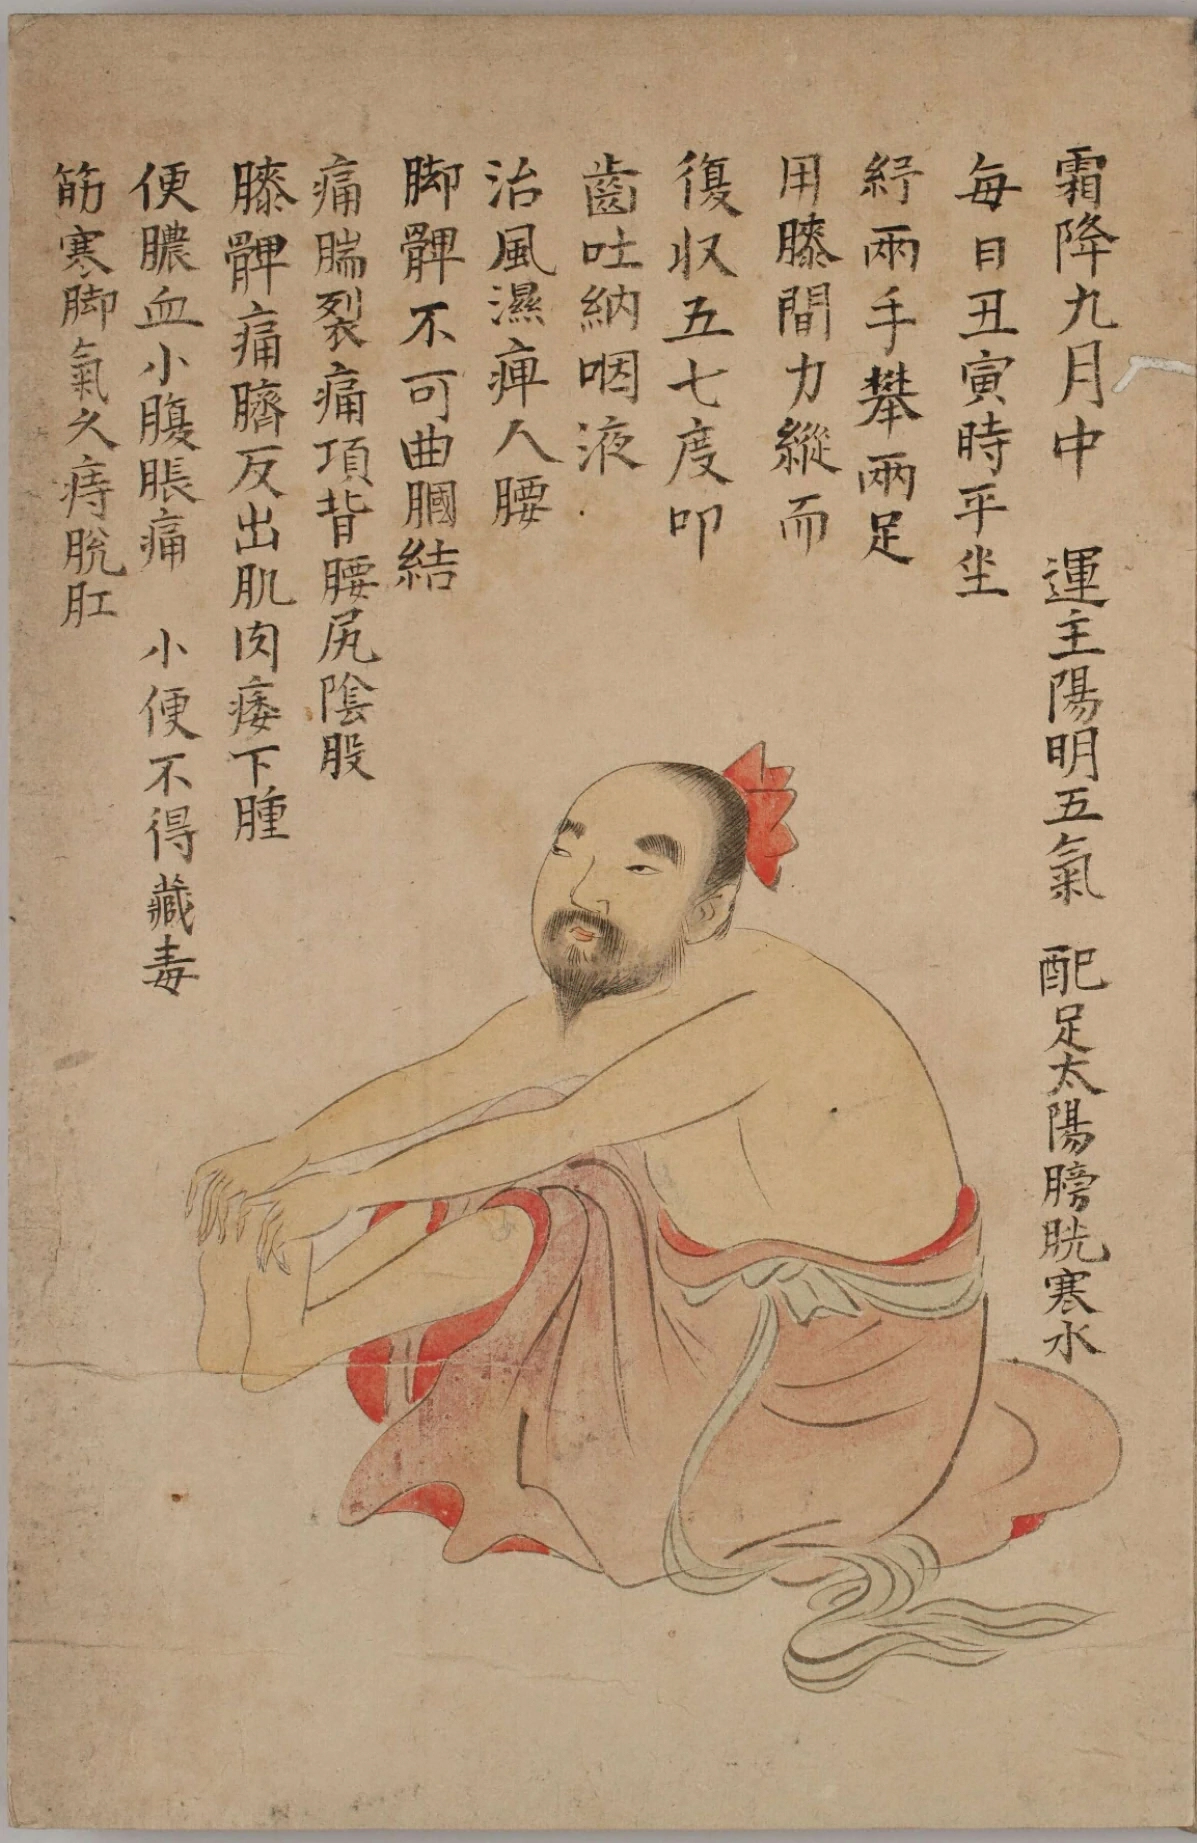 霜降九月中 運主陽明五氣 配足太陽膀胱寒水
每日丑寅時平坐
紓兩手攀兩足
用膝間力縱而
復収五七度叩
齒吐納咽液
治風濕痺人腰
脚髀不可曲膕結
痛腨裂痛項背腰尻陰股
膝髀痛臍反出肌肉痿下腫
便膿血小腹脹痛 小便不得藏毒
筋寒脚氣久痔脫肛